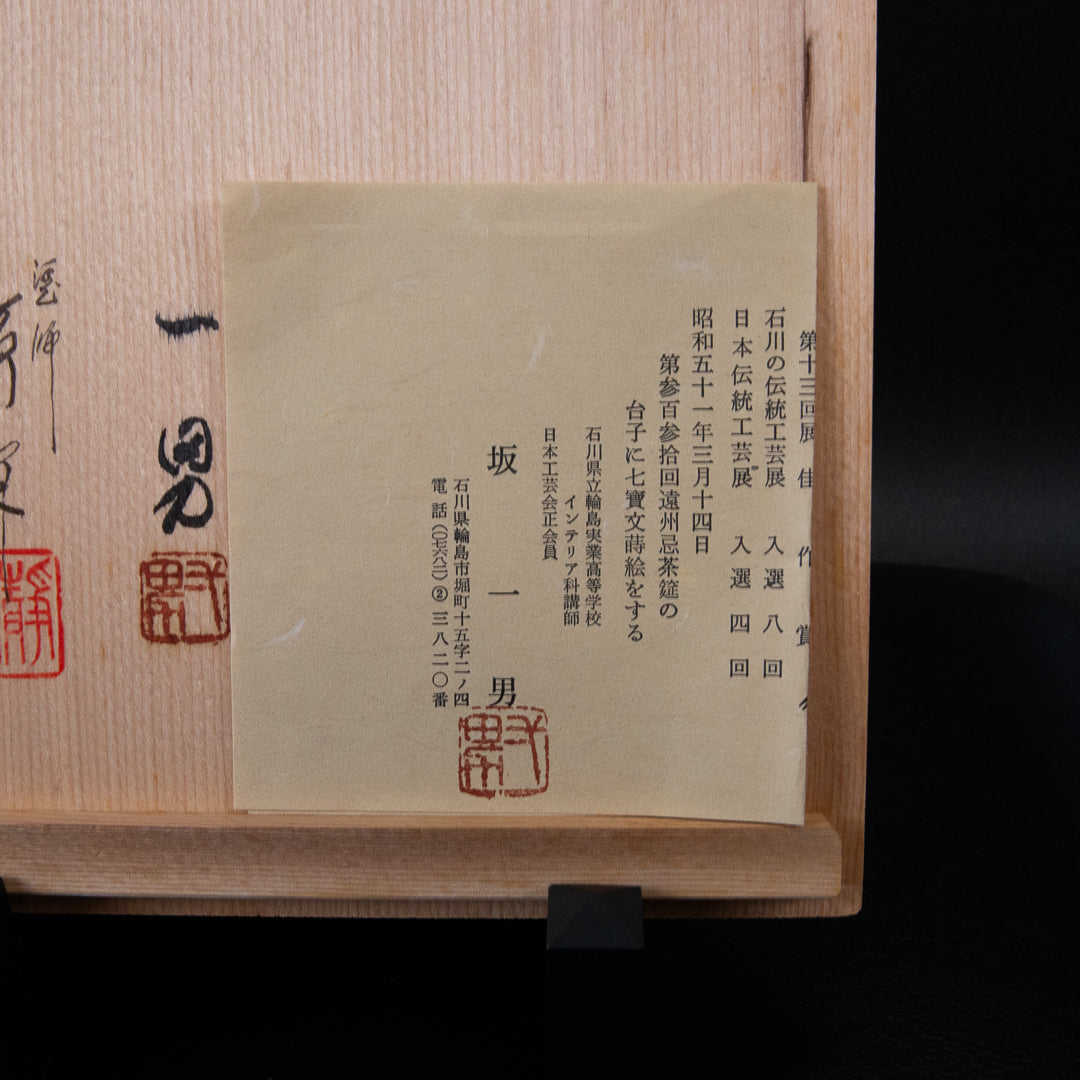 第十三回展 佳作賞
石川の伝統工芸展 入選八回
日本伝統工芸展 入選四回
昭和五十一年三月十四日
第参百参拾回遠州忌茶筵の
台子に七寳文蒔絵をする
石川県立輪島実業高等学校
インテリア科講師
日本工芸会正会員
坂一男
石川県輪島市堀町十五字二ノ四
電話(〇七六八二)②三八二〇番
一男
塗師